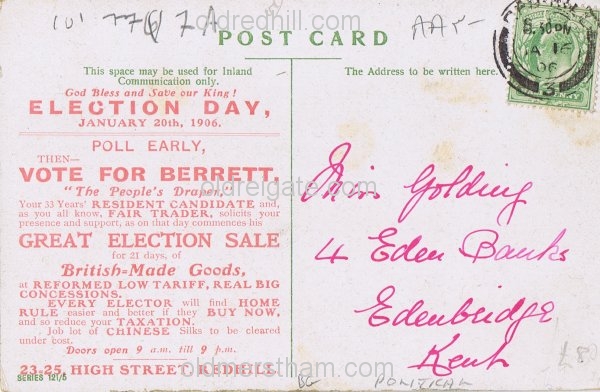 101 776 7A
AA5-
oldredhill.com
POST CARD
This space may be used for Inland
Communication only.
The Address to be written here.
God Bless and Save our King!
ELECTION DAY,
JANUARY 20th, 1906.
POLL EARLY,
THEN—
VOTE FOR BERRETT,
"The People's Draper,"
oldreigate.com
Your 33 Years' RESIDENT CANDIDATE and,
as you all know, FAIR TRADER, solicits your
presence and support, as on that day commences his
GREAT ELECTION SALE
for 21 days, of
British-Made Goods,
at REFORMED LOW TARIFF, REAL BIG
CONCESSIONS.
EVERY ELECTOR will find HOME
RULE easier and better if they BUY NOW,
and so reduce your TAXATION.
Job lot of CHINESE Silks to be cleared
under cost.
Doors open 9 a.m. till 9 p.m.
23-25, HIGH STREET, REDHILL.
SERIES 121/5
oldmerstham.com
Miss Golding
4 Eden Banks
Edenbridge
Kent
BG
POLITICAL
£8
JA 16
06
3